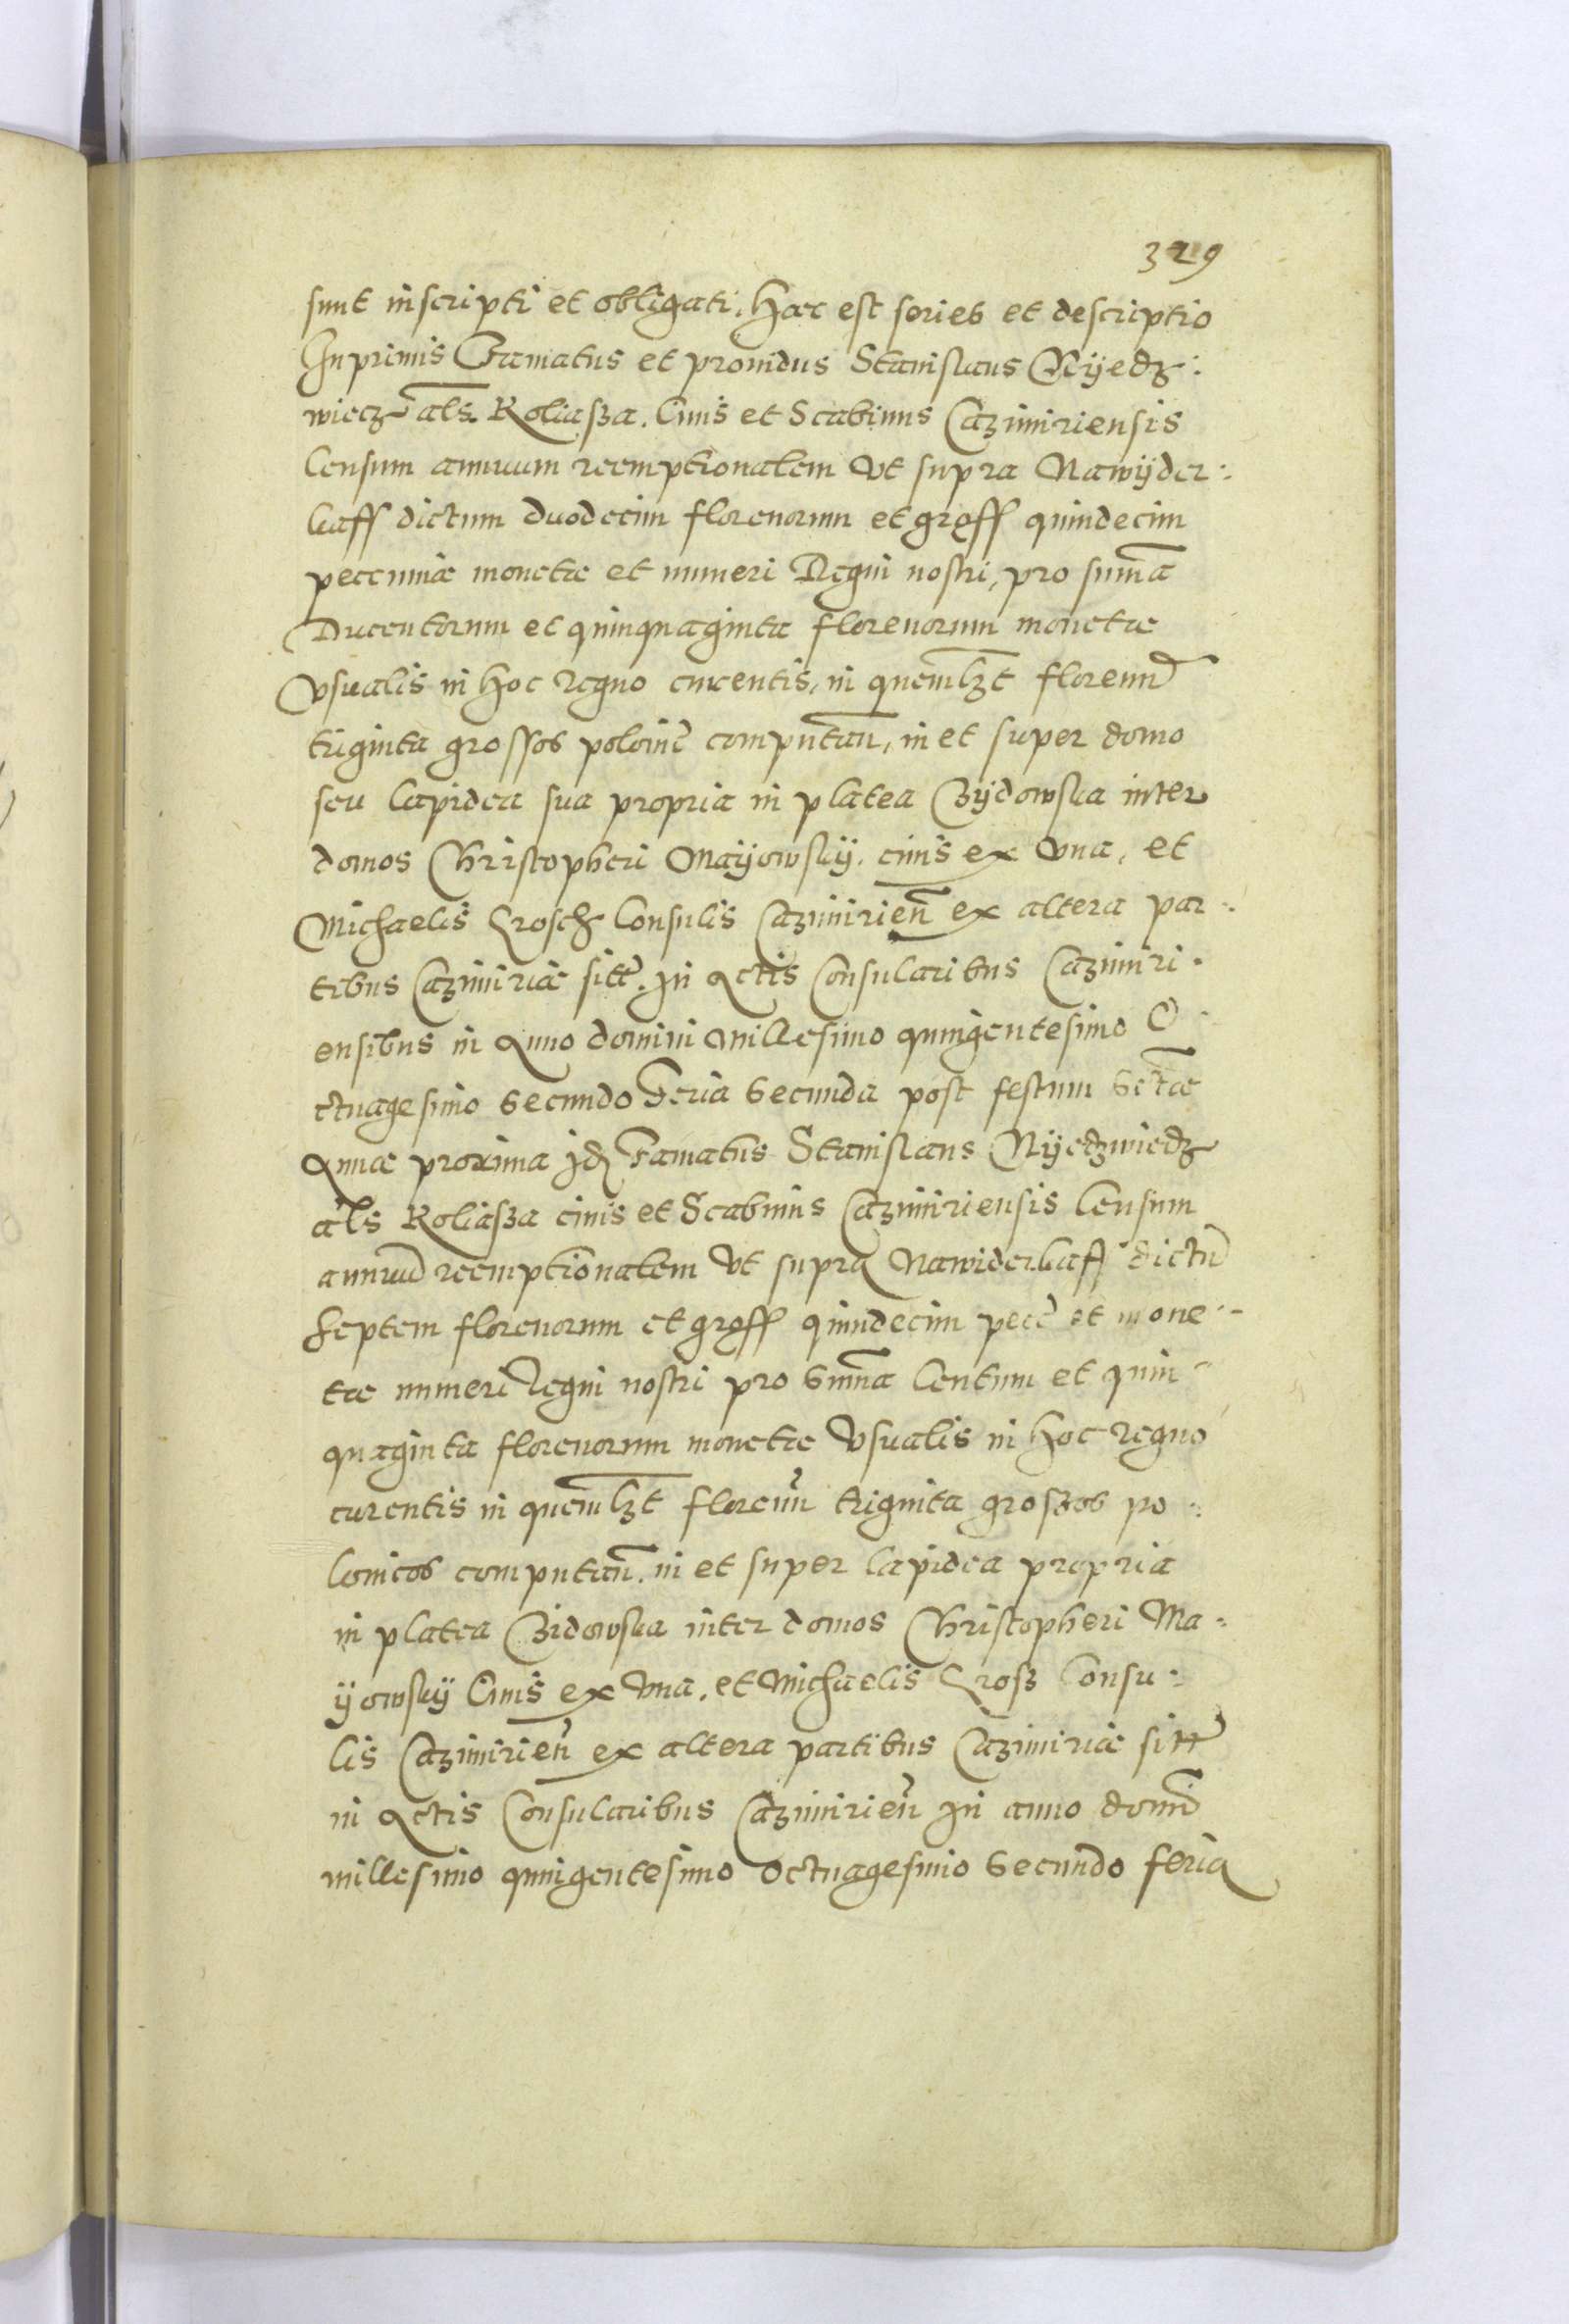 329
sunt inscripti et obligati. Haec est series et descriptio
Inprimis Famatus et prouidus Stanislaus Nÿedz:
wiecz als. Koliasza. Ciuis et Scabinus Cazimiriensis
Censum annuum reemptionalem vt supra Nawÿder:
kaff dictum duodecim florenorum et gross quindecim
pecuniæ monetæ et numeri Regni nostri, pro suma
Ducentorum et quinquaginta florenorum monetæ
vsualis in hoc regno currentis, in quemlzt florenu
triginta grossos polonic computan, in et super domo
seu lapidea sua propria in platea Zÿdowska inter
domos Christopheri Maÿowskÿ. ciuis ex vna, et
Michaelis Krosch Consulis Cazimirien ex altera par:
tibus Cazimiriæ sitt. in Actis Consularibus Cazimiri:
ensibus in Anno domini millesimo quingentesimo O
ctuagesimo Secundo Feria Secunda post festum Sctæ
Annæ proxima Id Famatus Stanislaus Nÿedzwiedz
als Koliasza ciuis et Scabinus Cazimiriensis Censum
annuu reemptionalem vt supra Nawiderkaff dictu
septem florenorum et gross quindecim pecc et mone:
tæ numeri regni nostri pro Suma Centum et quin
quaginta florenorum monetæ vsualis in hoc regno
curentis in quemlzt florenu triginta groszos po:
lonicos computan. in et super lapidea propria
in platea Zidowska inter domos Christopheri Ma:
ÿowskÿ Ciuis ex vna. et Michaelis Krosz Consu:
lis Cazimirien ex altera partibus Cazimiriæ sitt
in Actis Consularibus Cazimirien In anno domi
millesimo quingentesimo octuagesimo Secundo feria